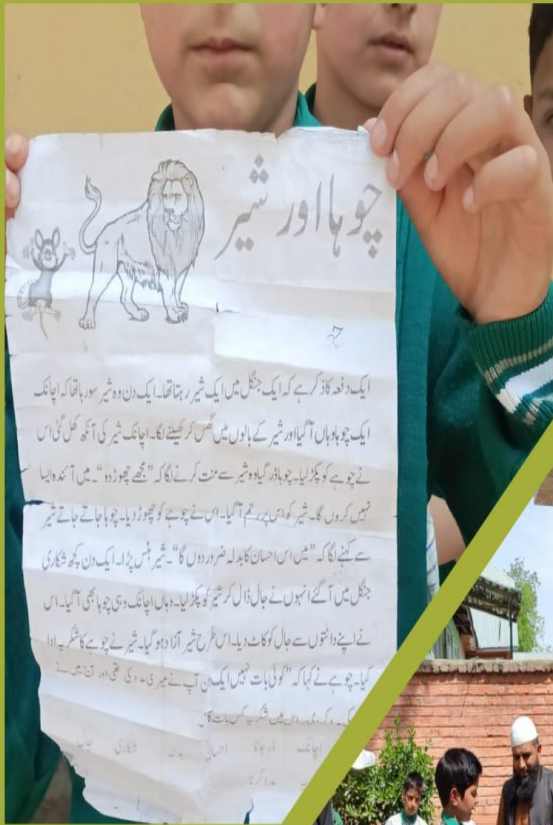 چوہا اور شیر
ایک دفعہ کا ذکر ہے کہ ایک جنگل میں ایک شیر رہتا تھا۔ ایک دن وہ شیر سو رہا تھا کہ اچانک
ایک چوہا وہاں آ گیا اور شیر کے بالوں میں گھس کر کھیلنے لگا۔ اچانک شیر کی آنکھ کھل گئی اس
نے چوہے کو پکڑ لیا۔ چوہا ڈر گیا وہ شیر سے منت کرنے لگا کہ "مجھے چھوڑ دو"۔ میں آئندہ ایسا
نہیں کروں گا۔ شیر کو اس پر رحم آ گیا۔ اس نے چوہے کو چھوڑ دیا۔ چوہا جاتے جاتے شیر
سے کہنے لگا کہ "میں اس احسان کا بدلہ ضرور دوں گا"۔ شیر ہنس پڑا۔ ایک دن کچھ شکاری
جنگل میں آ گئے انہوں نے جال ڈال کر شیر کو پکڑ لیا۔ وہاں اچانک وہی چوہا بھی آ گیا۔ اس
نے اپنے دانتوں سے جال کو کاٹ دیا۔ اس طرح شیر آزاد ہو گیا۔ شیر نے چوہے کا شکریہ ادا
کیا۔ چوہے نے کہا کہ "کوئی بات نہیں ایک دن آپ نے میری مدد کی تھی اور آج میں نے
اس میں شکریہ کس بات کا"۔
اچانک ڈر جانا احسان بدلہ شکاری جال
مدد کرنا